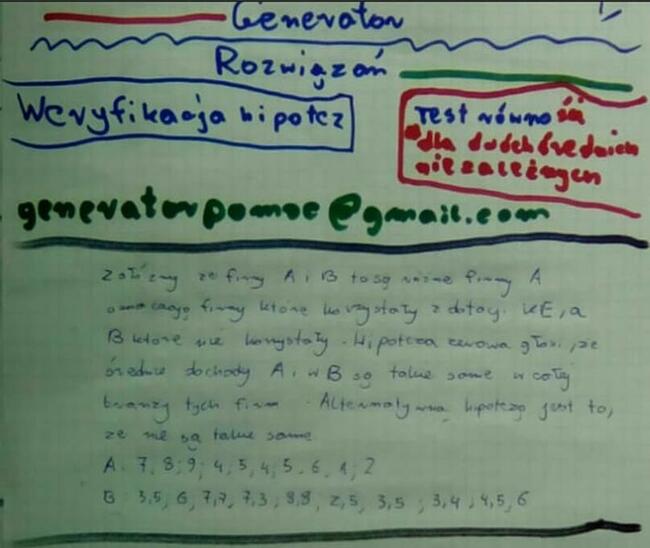 Generator
Rozwiązań
Weryfikacja hipotez
Test równości
dla dwóch średnich
niezależnych
generatorpomoc@gmail.com
Załóżmy że firmy A i B to są różne firmy A
oznaczają firmy które korzystały z dotacji UE, a
B które nie korzystały. Hipoteza zerowa głosi, że
średnie dochody A i w B są takie same w całej
branży tych firm. Alternatywną hipotezą jest to,
że nie są takie same
A: 7, 8, 9, 4, 5, 4, 5, 6, 1, 2
B: 3,5, 6, 7,7, 7,3, 8,8, 2,5, 3,5, 3,4, 4,5, 6